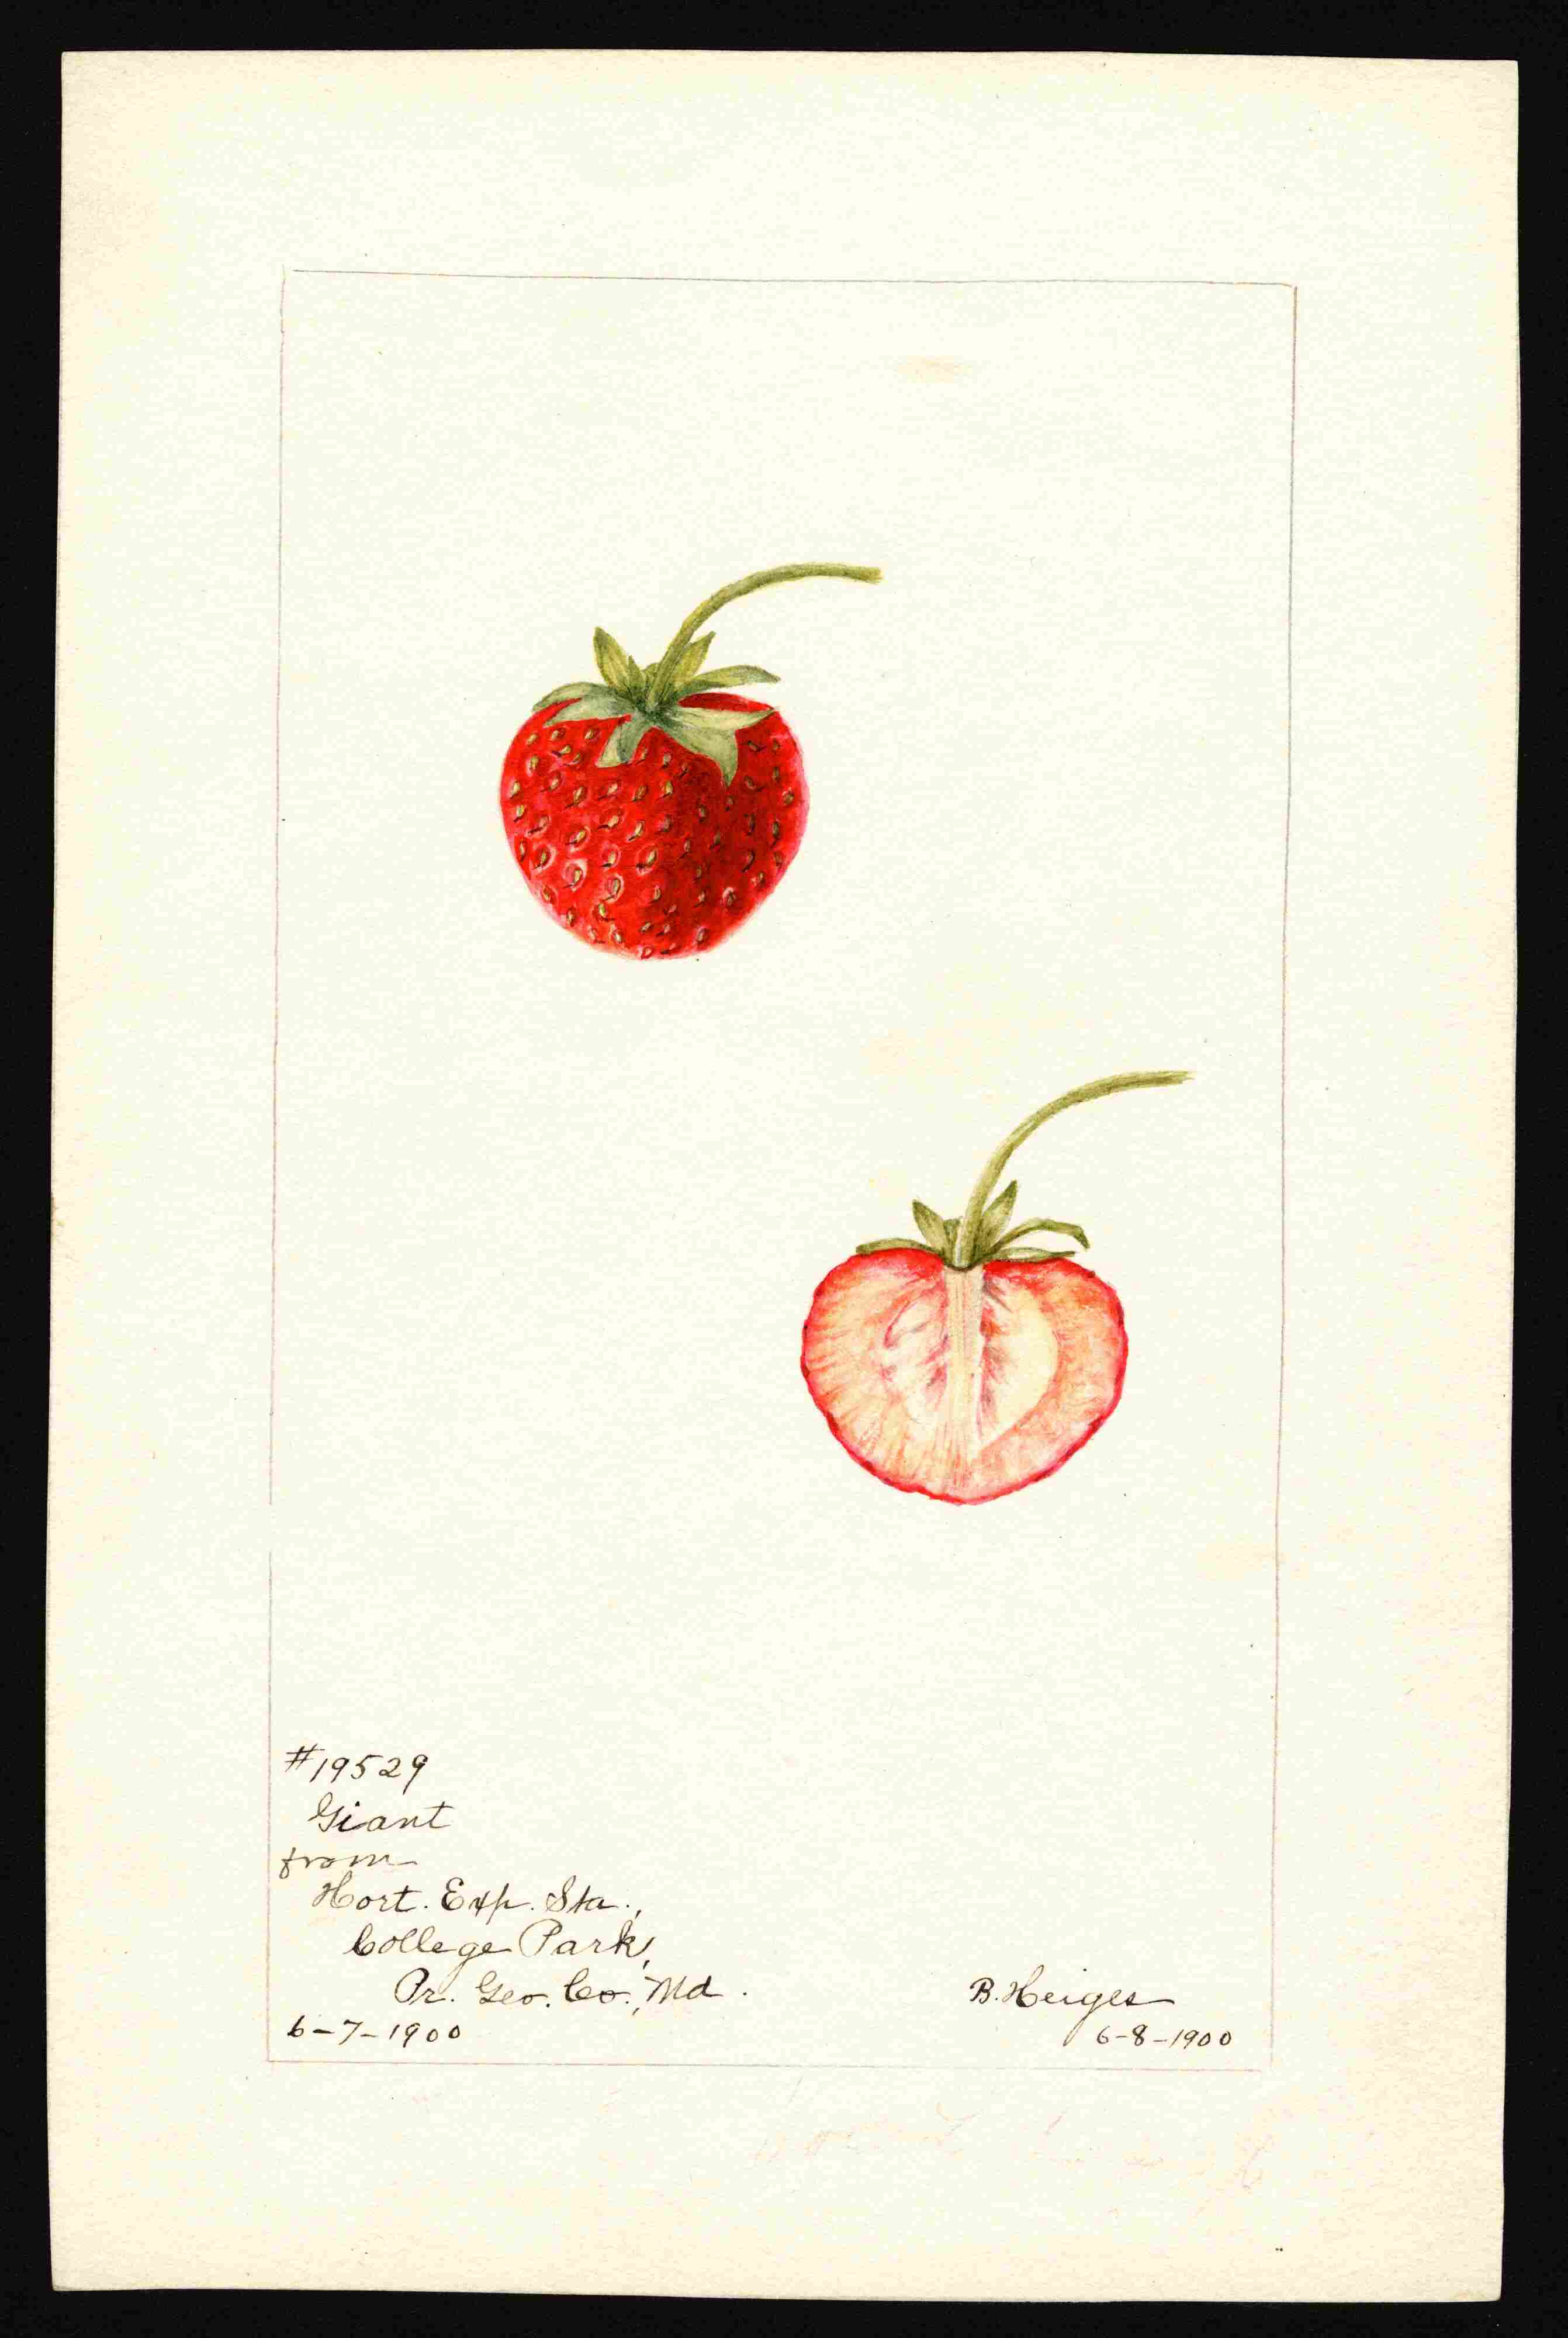 #19529
Giant
from
Hort. Exp. Sta.,
College Park,
Pr. Geo. Co., Md.
6-7-1900
B. Heiges
6-8-1900